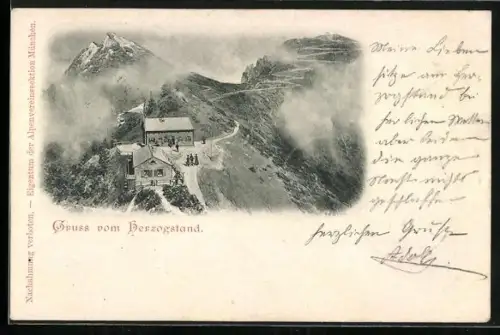 Nachahmung verboten. — Eigentum der Alpenvereinssektion München.
Gruss vom Herzogstand.
Meine Lieben
sitze am Her-
zogstand bei
herrlichem Wetter
aber leider
die ganze
Nacht nichts
geschlafen
herzlichen Gruß
Adolf